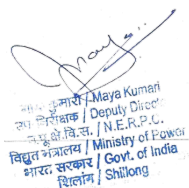 Maya
माया कुमारी / Maya Kumari
उप निदेशक / Deputy Direc
न.पू.क्षे.वि.स. / N.E.R.P.C.
विद्युत मंत्रालय / Ministry of Power
भारत सरकार / Govt. of India
शिलांग / Shillong